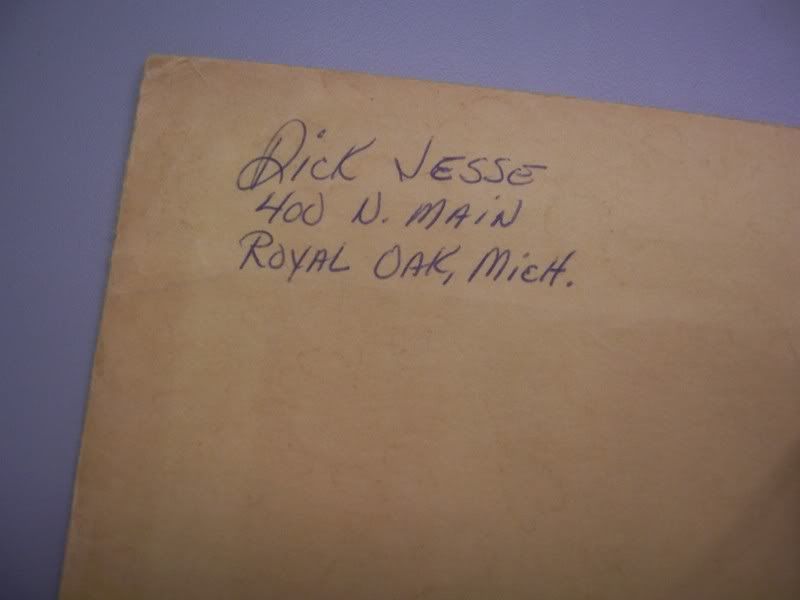 Dick Jesse
400 N. Main
Royal Oak, Mich.